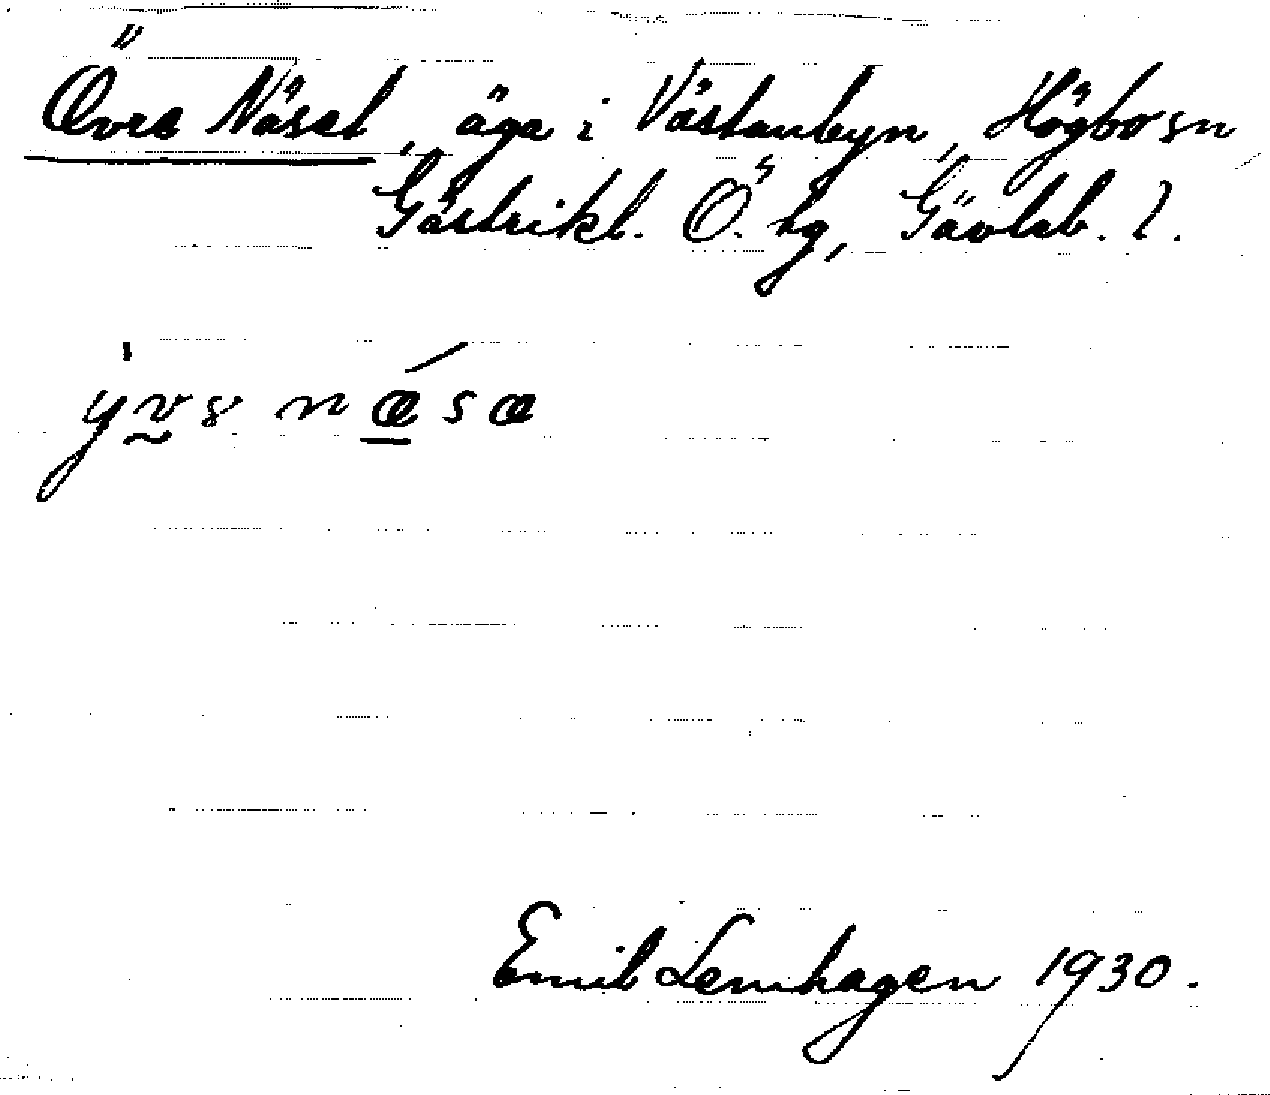 Övre Näset, äga i Västanbyn, Högbo sn,
Gästrikl. Ö. hg, Gävleb. l.
ývs næ´sæ
Emil Lemhagen 1930.